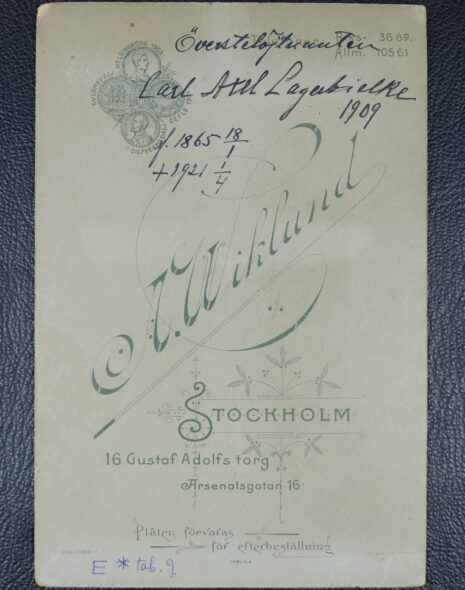 Överstelöjtnanten
Riks- 36 69.
Allm. 105 61
Carl Axel Lagerbielke
1909
GULDMEDALJ HELSINGBORG 1903
SILFVERMEDALJ GEFLE
f. 1865 18/1
+ 1921 1/4
A. Wiklund
STOCKHOLM
16 Gustaf Adolfs torg
Arsenalsgatan 16
Plåten förvaras
för efterbeställning
E * tab. 9.